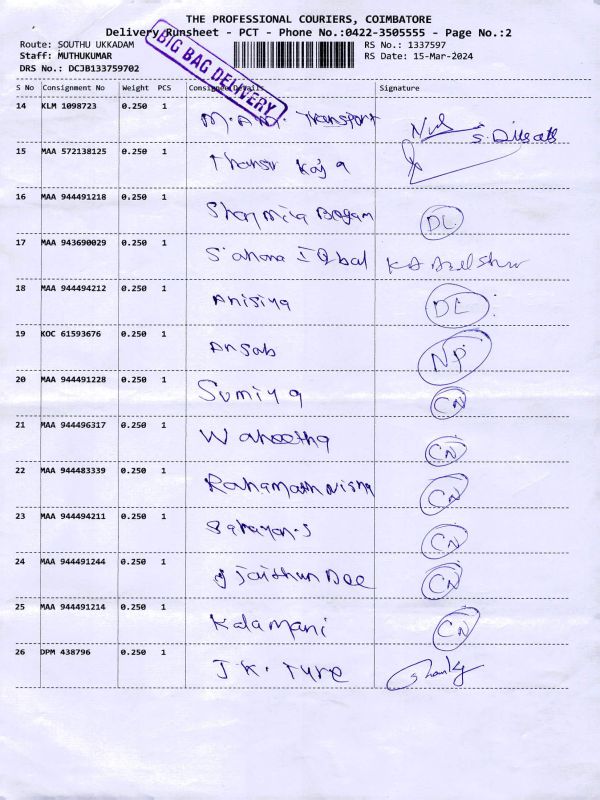 THE PROFESSIONAL COURIERS, COIMBATORE
Delivery Runsheet - PCT - Phone No.:0422-3505555 - Page No.:2
Route: SOUTHU UKKADAM RS No.: 1337597
Staff: MUTHUKUMAR RS Date: 15-Mar-2024
DRS No.: DCJB133759702
BIG BAG DELIVERY
S No Consignment No Weight PCS Consignee Details Signature
14 KLM 1098723 0.250 1 Transport
15 MAA 572138125 0.250 1
16 MAA 944491218 0.250 1 DL
17 MAA 943690029 0.250 1 IQbal
18 MAA 944494212 0.250 1 Anisiya DL
19 KOC 61593676 0.250 1 Ansab NP
20 MAA 944491228 0.250 1 Sumiya CN
21 MAA 944496317 0.250 1 Waheetha CN
22 MAA 944483339 0.250 1 Rahamath Nisha CN
23 MAA 944494211 0.250 1 CN
24 MAA 944491244 0.250 1 Jaithun Bee CN
25 MAA 944491214 0.250 1 Kalamani CN
26 DPM 438796 0.250 1 J.K. Tyre